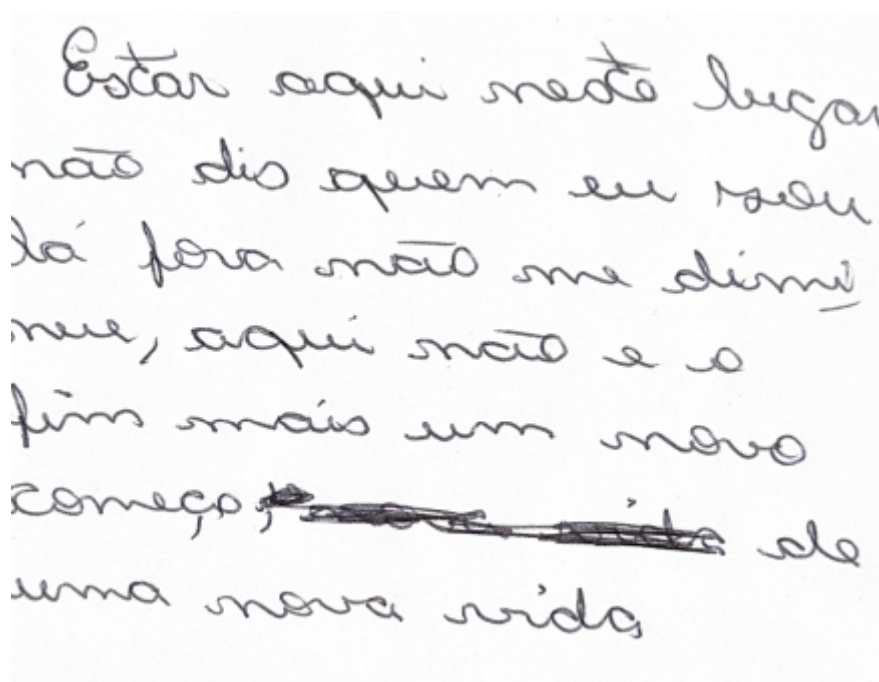 Estar aqui neste lugar
não dis quem eu sou
lá fora não me dimi
nue, aqui não e o
fim mais um novo
começo, de
uma nova vida